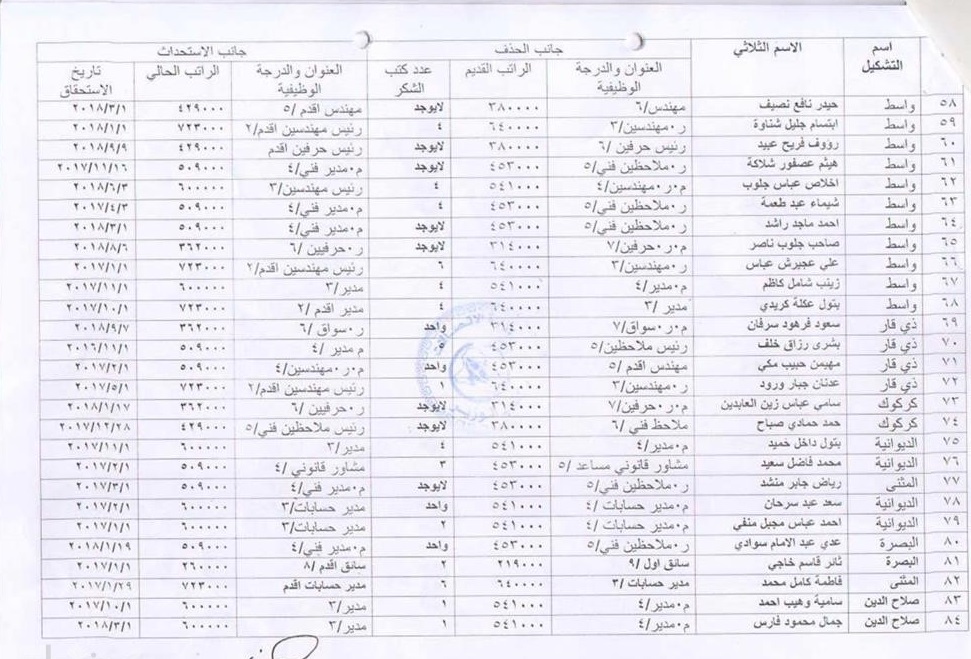 اسم التشكيل | الاسم الثلاثي | جانب الحذف | جانب الاستحداث
العنوان والدرجة الوظيفية | الراتب القديم | عدد كتب الشكر | العنوان والدرجة الوظيفية | الراتب الحالي | تاريخ الاستحقاق
٥٨ | واسط | حيدر نافع نصيف | مهندس/٦ | ٣٨٠٠٠٠ | لايوجد | مهندس اقدم /٥ | ٤٢٩٠٠٠ | ٢٠١٨/٣/١
٥٩ | واسط | ابتسام جليل شناوة | ر٠مهندسين/٣ | ٦٤٠٠٠٠ | ٤ | رئيس مهندسين اقدم/٢ | ٧٢٣٠٠٠ | ٢٠١٨/١/١
٦٠ | واسط | رؤوف فريح عبيد | رئيس حرفين /٦ | ٣٨٠٠٠٠ | لايوجد | رئيس حرفين اقدم | ٤٢٩٠٠٠ | ٢٠١٨/٩/٩
٦١ | واسط | هيثم عصفور شلاكة | ر٠ملاحظين فني/٥ | ٤٥٣٠٠٠ | لايوجد | م٠مدير فني/٤ | ٥٠٩٠٠٠ | ٢٠١٧/١١/١٦
٦٢ | واسط | اخلاص عباس جلوب | م٠ر٠مهندسين/٤ | ٥٤١٠٠٠ | ٤ | رئيس مهندسين/٣ | ٦٠٠٠٠٠ | ٢٠١٨/٦/٣
٦٣ | واسط | شيماء عبد طعمة | ر٠ملاحظين فني/٥ | ٤٥٣٠٠٠ | ٤ | م٠مدير فني/٤ | ٥٠٩٠٠٠ | ٢٠١٧/٤/٣
٦٤ | واسط | احمد ماجد راشد | ر٠ملاحظين فني/٥ | ٤٥٣٠٠٠ | لايوجد | م٠مدير فني/٤ | ٥٠٩٠٠٠ | ٢٠١٨/٣/١
٦٥ | واسط | صاحب جلوب ناصر | م٠ر٠حرفين/٧ | ٣١٤٠٠٠ | لايوجد | ر٠حرفيين /٦ | ٣٦٢٠٠٠ | ٢٠١٨/٨/٦
٦٦ | واسط | علي عجيرش عباس | ر٠مهندسين/٣ | ٦٤٠٠٠٠ | ٦ | رئيس مهندسين اقدم/٢ | ٧٢٣٠٠٠ | ٢٠١٧/١/١
٦٧ | واسط | زينب شامل كاظم | م٠مدير/٤ | ٥٤١٠٠٠ | ٤ | مدير/٣ | ٦٠٠٠٠٠ | ٢٠١٧/١١/١
٦٨ | واسط | بتول عكلة كريدي | مدير /٣ | ٦٤٠٠٠٠ | ٤ | مدير اقدم /٢ | ٧٢٣٠٠٠ | ٢٠١٧/١٠/١
٦٩ | ذي قار | سعود فرهود سرفان | م٠ر٠سواق/٧ | ٣١٤٠٠٠ | واحد | ر٠سواق /٦ | ٣٦٢٠٠٠ | ٢٠١٨/٩/٧
٧٠ | ذي قار | بشرى رزاق خلف | رئيس ملاحظين/٥ | ٤٥٣٠٠٠ | ٥ | م مدير /٤ | ٥٠٩٠٠٠ | ٢٠١٦/١١/١
٧١ | ذي قار | مهيمن حبيب مكي | مهندس اقدم /٥ | ٤٥٣٠٠٠ | واحد | م٠ر٠مهندسين/٤ | ٥٠٩٠٠٠ | ٢٠١٧/٢/١
٧٢ | ذي قار | عدنان جبار ورود | ر٠مهندسين/٣ | ٦٤٠٠٠٠ | ١ | رئيس مهندسين اقدم/٢ | ٧٢٣٠٠٠ | ٢٠١٧/٥/١
٧٣ | كركوك | سامي عباس زين العابدين | م٠ر٠حرفين/٧ | ٣١٤٠٠٠ | لايوجد | ر٠حرفيين /٦ | ٣٦٢٠٠٠ | ٢٠١٨/١/١٧
٧٤ | كركوك | حمد حمادي صباح | ملاحظ فني /٦ | ٣٨٠٠٠٠ | لايوجد | رئيس ملاحظين فني/٥ | ٤٢٩٠٠٠ | ٢٠١٧/١٢/٢٨
٧٥ | الديوانية | بتول داخل حميد | م٠مدير/٤ | ٥٤١٠٠٠ | ٤ | مدير/٣ | ٦٠٠٠٠٠ | ٢٠١٧/١١/١
٧٦ | الديوانية | محمد فاضل سعيد | مشاور قانوني مساعد /٥ | ٤٥٣٠٠٠ | ٣ | مشاور قانوني /٤ | ٥٠٩٠٠٠ | ٢٠١٧/٢/١
٧٧ | المثنى | رياض جابر منشد | ر٠ملاحظين فني/٥ | ٤٥٣٠٠٠ | لايوجد | م٠مدير فني/٤ | ٥٠٩٠٠٠ | ٢٠١٧/٣/١
٧٨ | الديوانية | سعد عبد سرحان | م٠مدير حسابات /٤ | ٥٤١٠٠٠ | واحد | مدير حسابات/٣ | ٦٠٠٠٠٠ | ٢٠١٧/٢/١
٧٩ | الديوانية | احمد عباس مجبل منفي | م٠مدير حسابات /٤ | ٥٤١٠٠٠ | ٢ | مدير حسابات/٣ | ٦٠٠٠٠٠ | ٢٠١٧/١/١
٨٠ | البصرة | عدي عبد الامام سوادي | ر٠ملاحظين فني/٥ | ٤٥٣٠٠٠ | واحد | م٠مدير فني/٤ | ٥٠٩٠٠٠ | ٢٠١٨/١/١٩
٨١ | البصرة | ثائر قاسم خاجي | سائق اول /٩ | ٢١٩٠٠٠ | ٢ | سائق اقدم /٨ | ٢٦٠٠٠٠ | ٢٠١٧/١/١
٨٢ | المثنى | فاطمة كامل محمد | مدير حسابات /٣ | ٦٤٠٠٠٠ | ٦ | مدير حسابات اقدم | ٧٢٣٠٠٠ | ٢٠١٧/١/٢٩
٨٣ | صلاح الدين | سامية وهيب احمد | م٠مدير/٤ | ٥٤١٠٠٠ | ١ | مدير/٣ | ٦٠٠٠٠٠ | ٢٠١٧/١٠/١
٨٤ | صلاح الدين | جمال محمود فارس | م٠مدير/٤ | ٥٤١٠٠٠ | ١ | مدير/٣ | ٦٠٠٠٠٠ | ٢٠١٨/٣/١